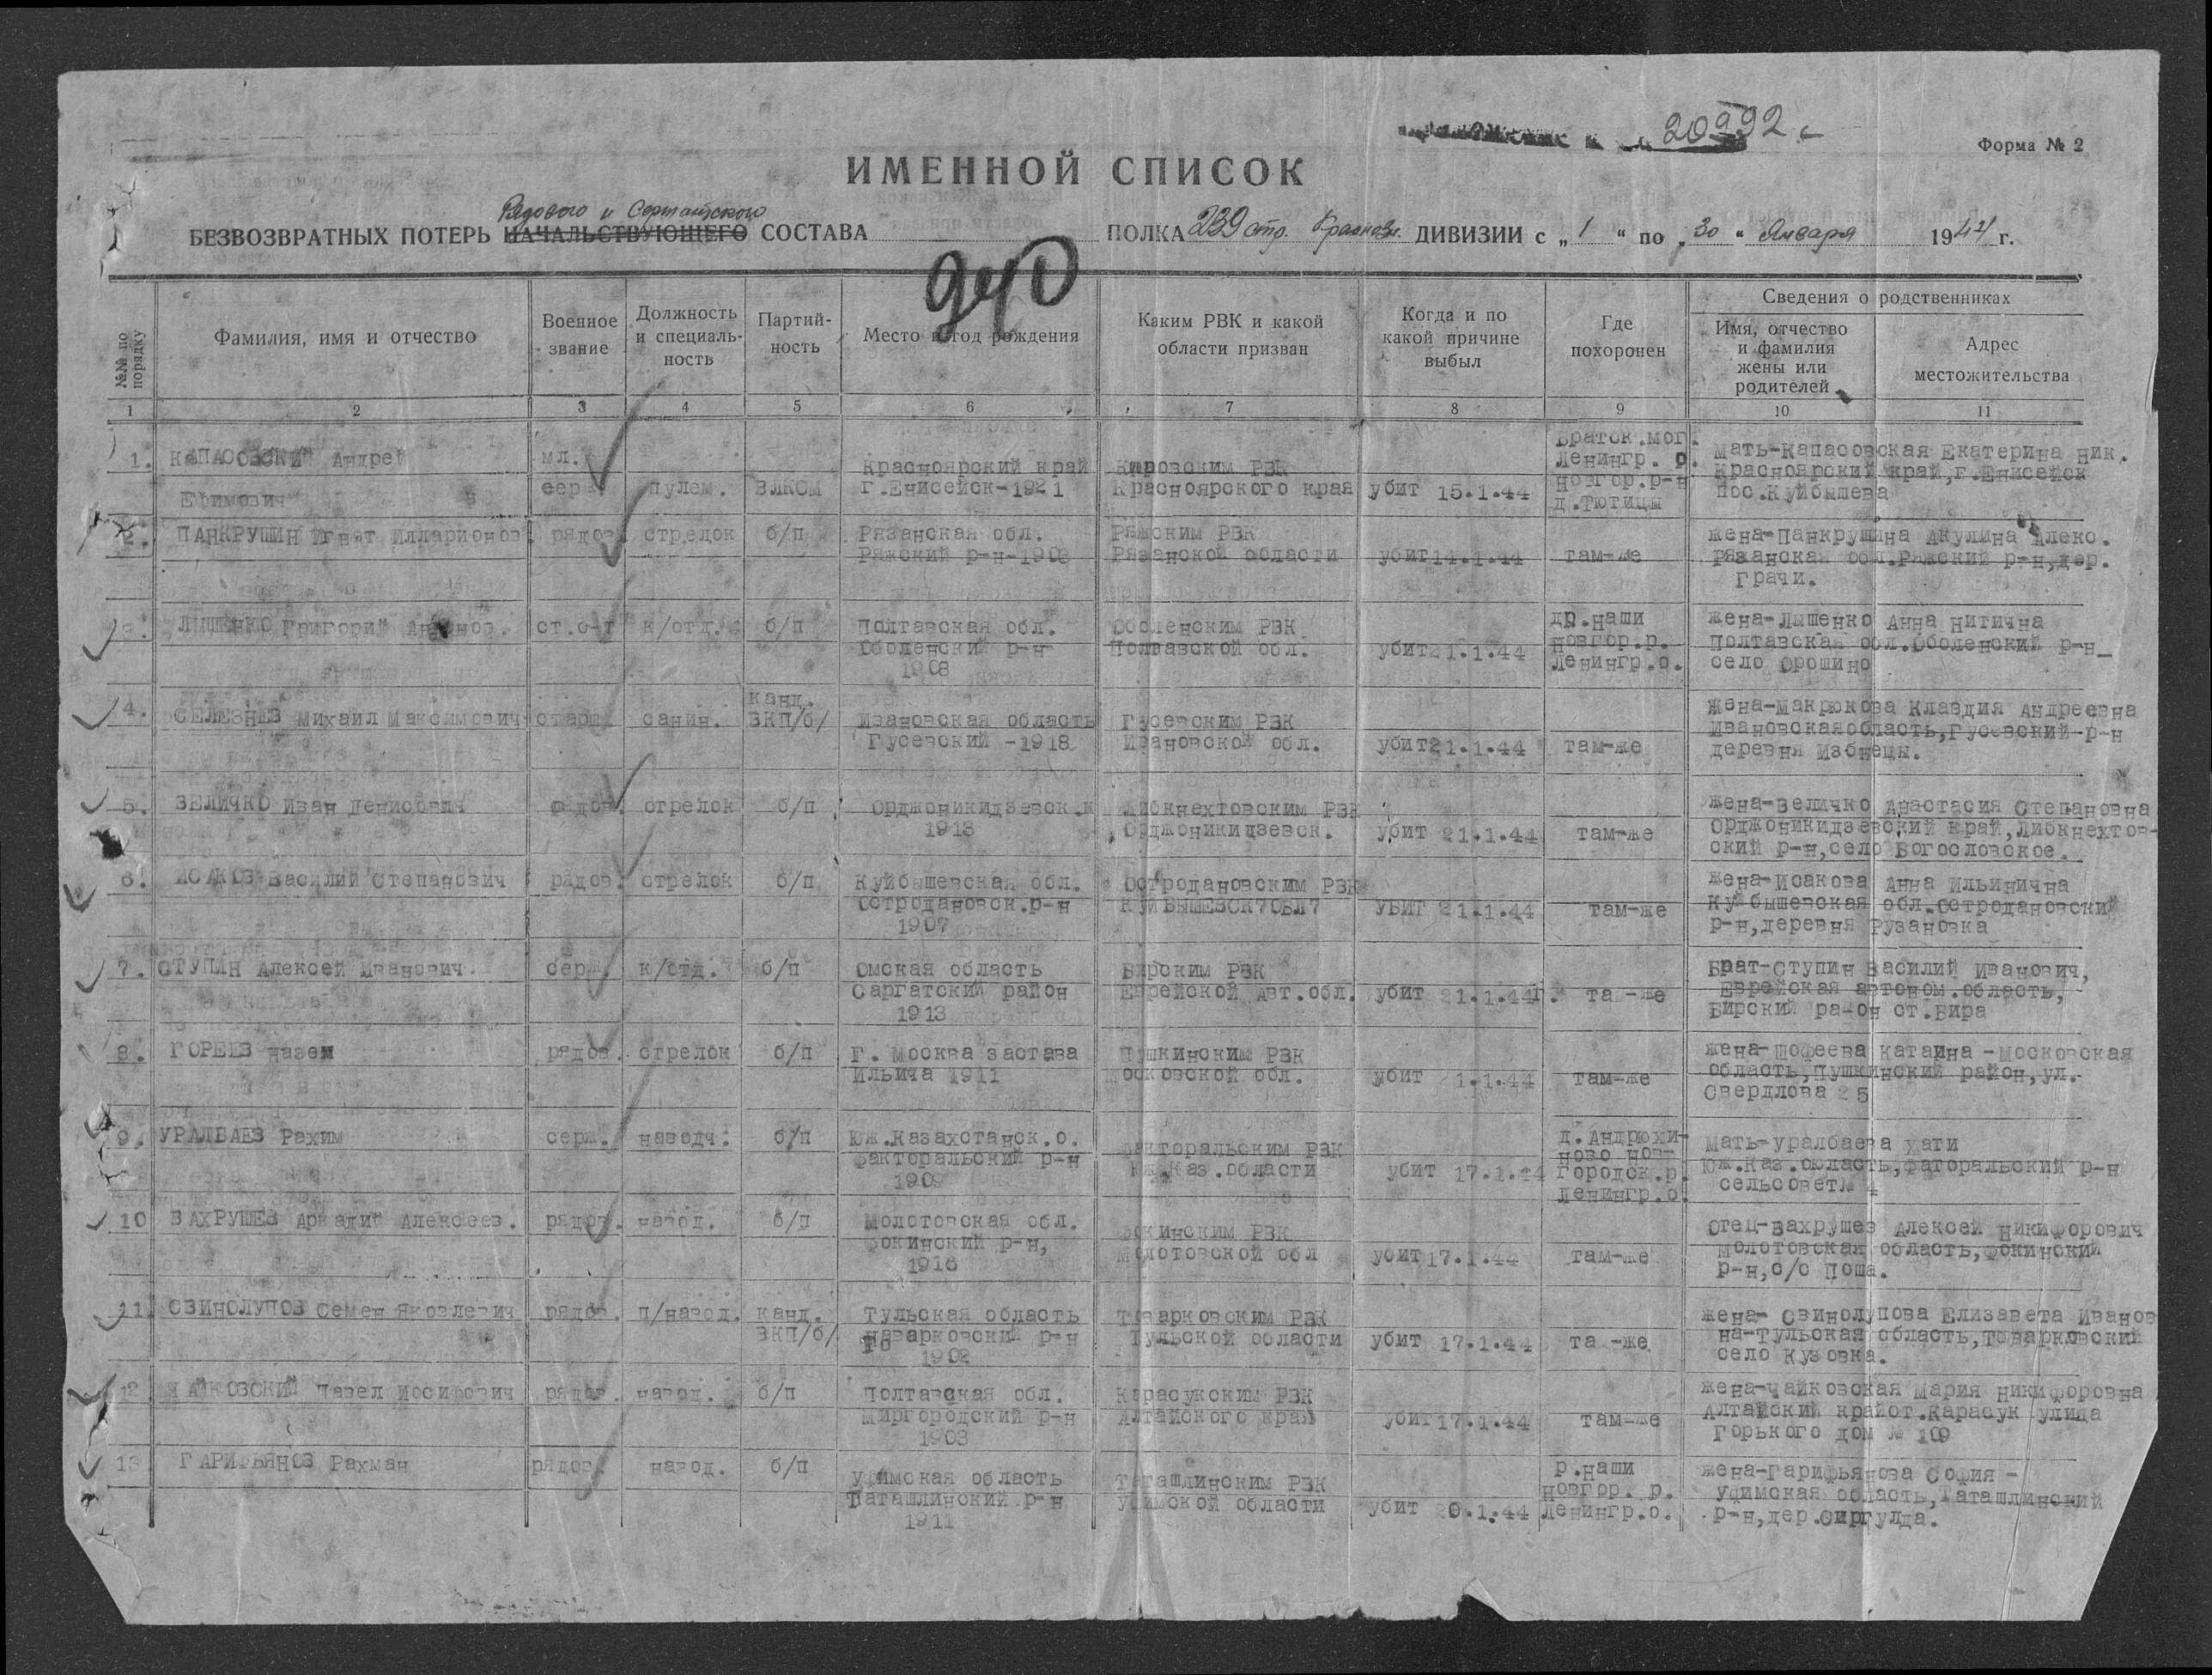 20992с
Форма № 2
ИМЕННОЙ СПИСОК
Рядового и Сержантского
БЕЗВОЗВРАТНЫХ ПОТЕРЬ НАЧАЛЬСТВУЮЩЕГО СОСТАВА ПОЛКА 239 стр. Краснозн. ДИВИЗИИ с „ 1 “ по „ 30 “ Января 1944 г.
940
№№ по порядку
Фамилия, имя и отчество
Военное звание
Должность и специаль-ность
Партий-ность
Место и год рождения
Каким РВК и какой области призван
Когда и по какой причине выбыл
Где похоронен
Сведения о родственниках
Имя, отчество и фамилия жены или родителей
Адрес местожительства
1 2 3 4 5 6 7 8 9 10 11
1. КАПАСОВСКИЙ Андрей мл. Братск.мог. Мать-Капасовская Екатерина Ник.
Красноярский край Кировским РВК Ленингр. о. Красноярский край,г.Енисейск
Ефимович серж. пулем. ВЛКСМ г.Енисейск-1921 Красноярского края убит 15.1.44 новгор.р-н пос.Куйбышева
д.Тютицы
2. ПАНКРУШИН Игнат Илларионов рядов. стрелок б/п Рязанская обл. Ряжским РВК жена-Панкрушина Акулина Алекс.
Ряжский р-н-1903 Рязанской области убит14.1.44 там-же рязанская обл.Ряжский р-н,дер.
Грачи.
3. ЛЫШЕНКО Григорий ст.с-т к/отд. б/п Полтавская обл. Оболенским РВК др.наши жена-Лышенко Анна Нитична
Оболенский р-н Полтавской обл. убит21.1.44 новгор.р. Полтавская обл.Оболенский р-н
1908 Ленингр.о. село Орошино
4. СЕЛЕЗНЕВ Михаил Максимович старш. санин. канд. ВКП/б/ Ивановская область Гусевским РВК жена-Макрюкова Клавдия Андреевна
Гусевский -1918 Ивановской обл. убит21.1.44 там-же Ивановскаяобласть,Гусевский р-н
деревня Избнецы.
5. ВЕЛИЧКО Иван Денисович рядов. стрелок б/п Орджоникидзевск.к Либкнехтовским РВК жена-Величко Анастасия Степановна
1913 Орджоникидзевск. убит 21.1.44 там-же Орджоникидзевский край,Либкнехтов-
ский р-н,село Богословское.
6. ИСАКОВ Василий Степанович рядов. стрелок б/п Куйбышевская обл. Остродановским РВК жена-Исакова Анна Ильинична
Остродановск.р-н КУЙБЫШЕВСК7ОБЛ7 УБИТ 21.1.44 там-же Куйбышевская обл.Остродановский
1907 р-н,деревня Рузановка
7. СТУПИН Алексей Иванович серж. к/отд. б/п Омская область Бирским РВК Брат-Ступин Василий Иванович,
Саргатский район Еврейской Авт.обл. убит 21.1.44г. та -же Еврейская автоном.область,
1913 Бирский ра-он ст.Бира
8. ГОРЕЕВ Назем рядов. стрелок б/п Г. Москва застава Пушкинским РВК жена-Шофеева Катаина -Московская
Ильича 1911 осковской обл. убит 1.1.44 там-же область,Пушкинский район,ул.
Свердлова 25
9. УРАЛБАЕВ Рахим серж. наводч. б/п Юж.Казахстанск.о. Факторальским РВК д.Андрюхи- Мать-уралбаева хати
Факторальский р-н Юж.Каз.области убит 17.1.44 ново нов- Юж.Каз.область,фаторальский р-н
1909 городск.р. сельсовет№ 4
Ленингр.о.
10 ВАХРУШЕВ Аркадий Алексеев. рядов. навод. б/п Молотовская обл. Фокинским РВК Отец-Вахрушев Алексей Никифорович
Фокинский р-н, Молотовской обл убит17.1.44 там-же Молотовская область,фокинский
1916 р-н,с/с Поша.
11. СВИНОЛУПОВ Семен Яковлевич рядов. п/навод. канд. Тульская область Товарковским РВК жена- Свинолупова Елизавета Иванов
ВКП/б/ Товарковский р-н Тульской области убит 17.1.44 та -же на-Тульская область,Товарковский
1902 село Кузовка.
12 ЧАЙКОВСКИЙ Павел Иосифович рядов. навод. б/п Полтавская обл. Карасукским РВК жена-чайковская Мария Никифоровна
Миргородский р-н Алтайского края убит17.1.44 там-же Алтайский крайст.Карасук улица
1903 Горького дом № 109
13 ГАРИФЬЯНОВ Рахман рядов. навод. б/п Уфимская область Таташлинским РВК р.наши жена-Гарифьянова София -
Таташлинский р-н Уфимской области убит 20.1.44 новгор. р. Уфимская область,Таташлинский
1911 Ленингр.о. р-н,дер.Сиргулда.